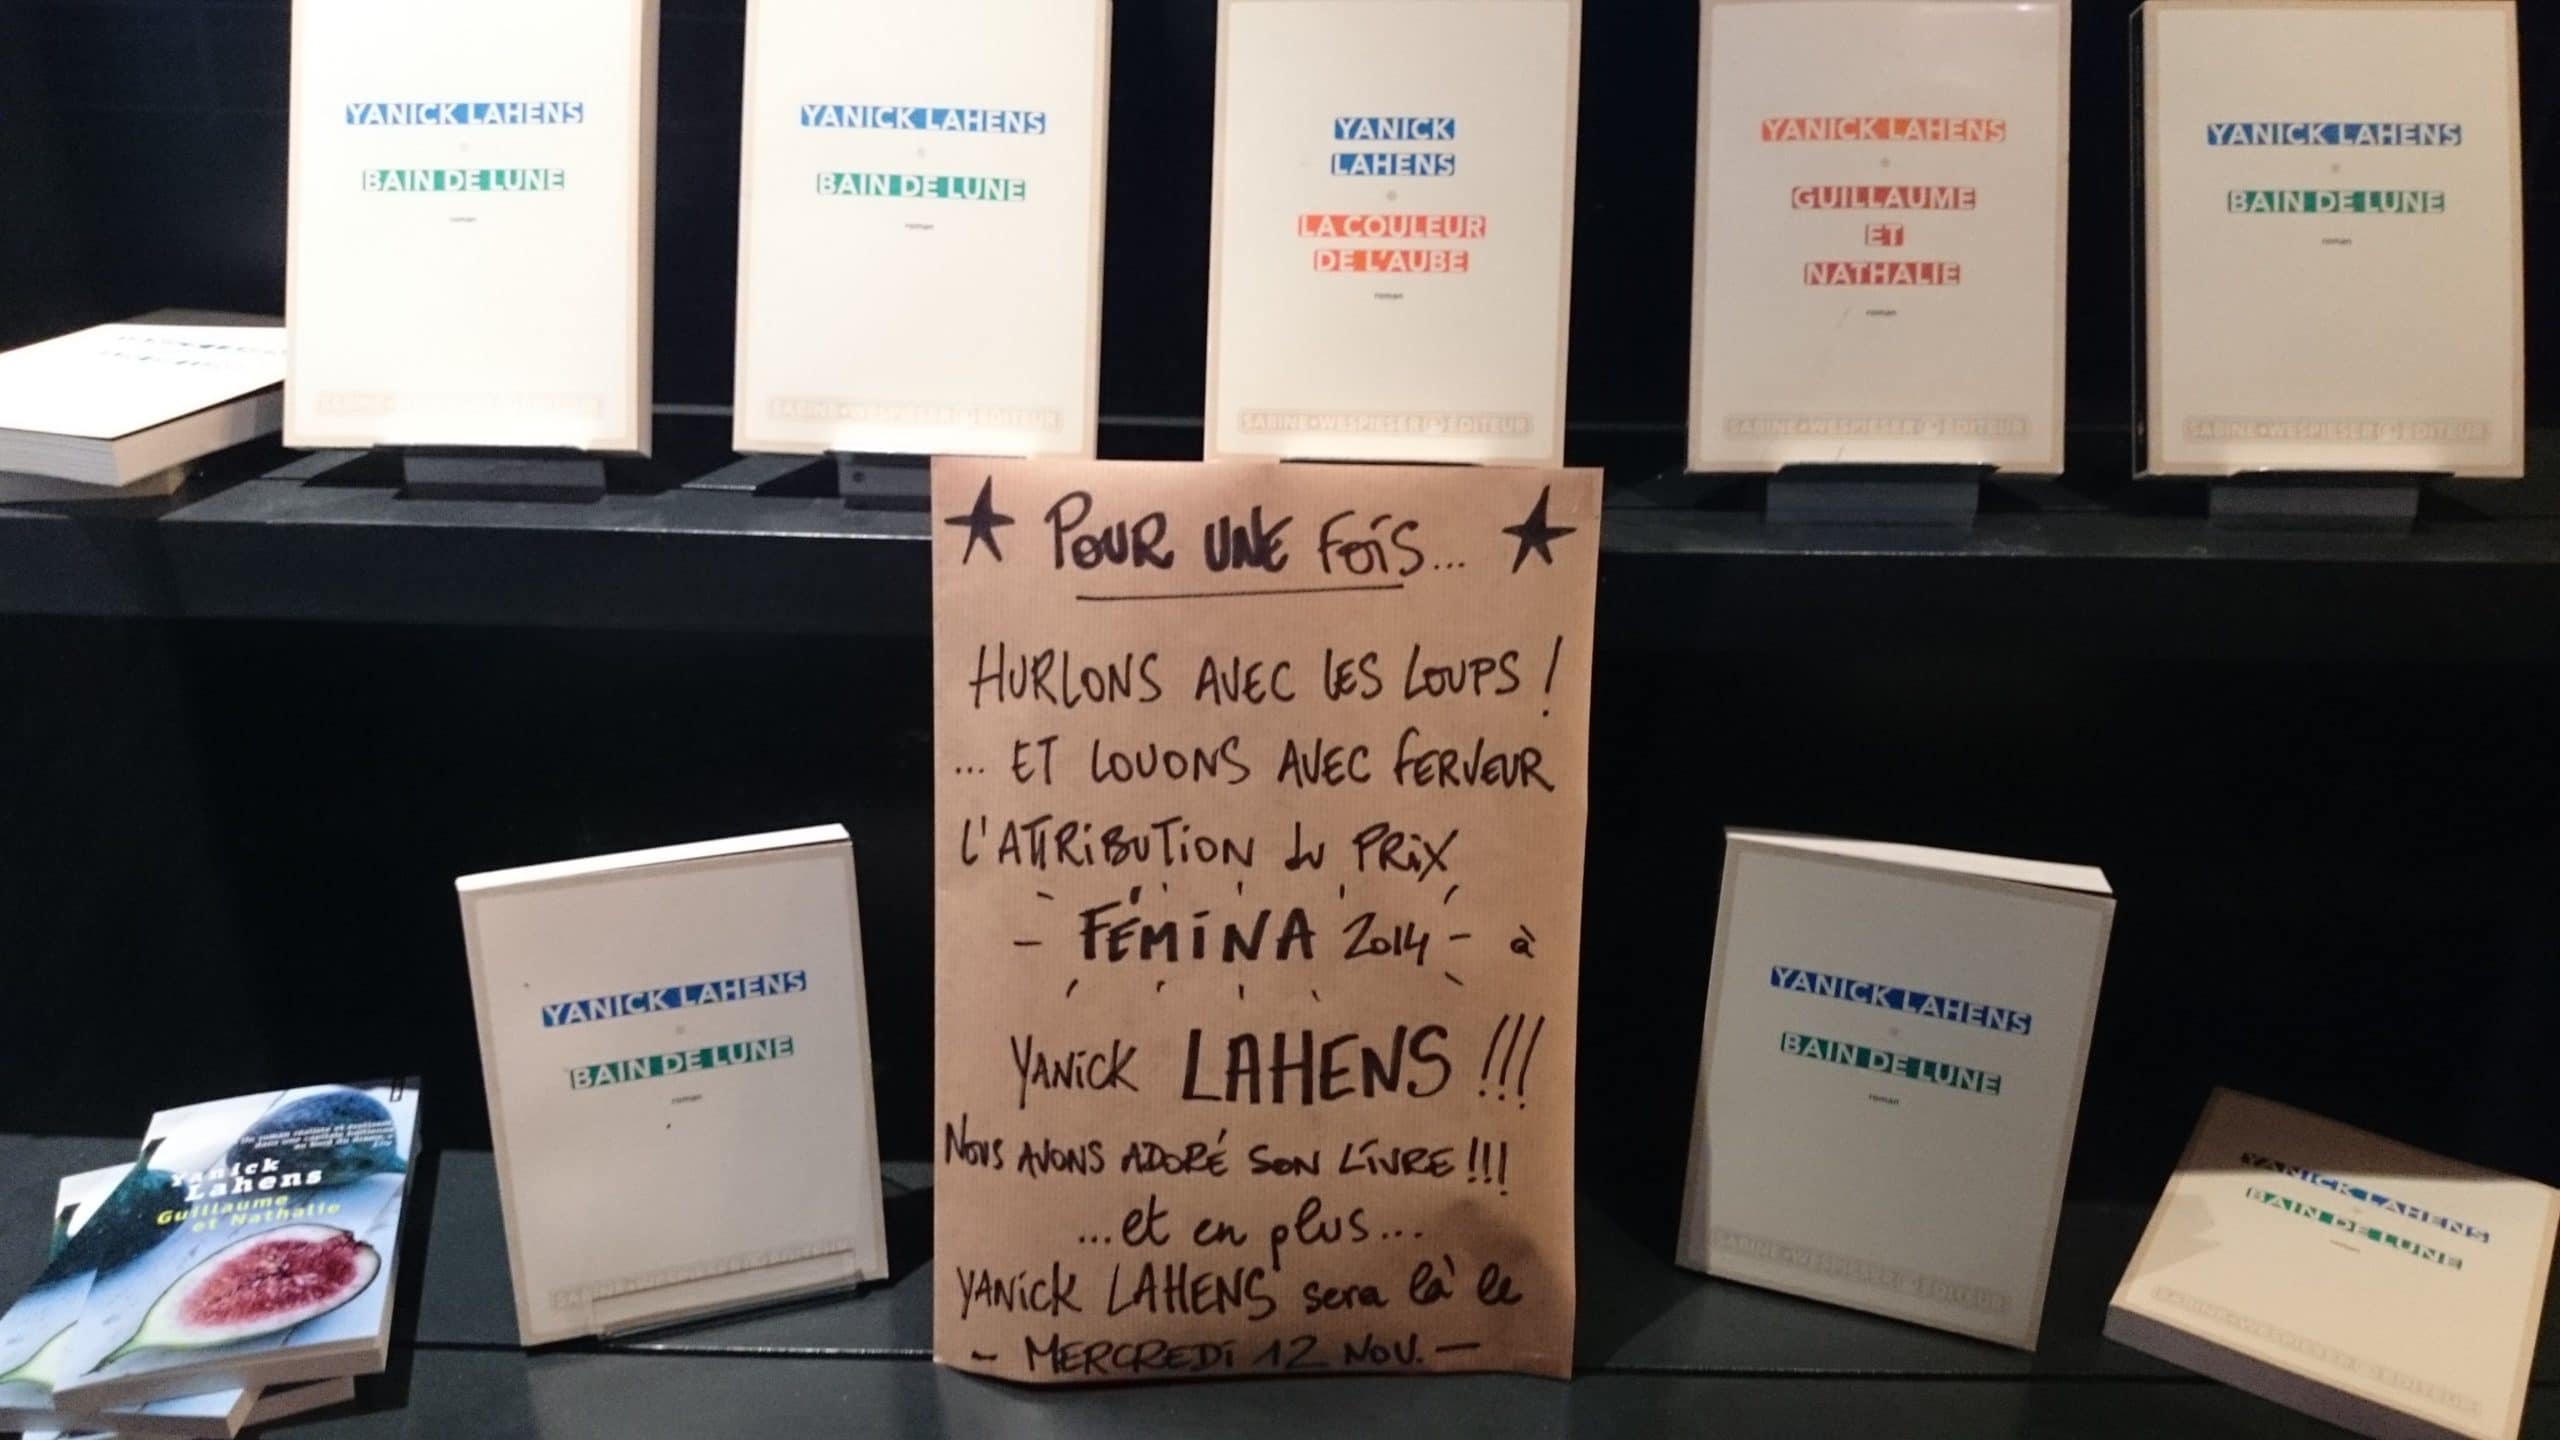 YANICK LAHENS
BAIN DE LUNE
roman
SABINE WESPIESER ÉDITEUR
YANICK LAHENS
BAIN DE LUNE
roman
SABINE WESPIESER ÉDITEUR
YANICK
LAHENS
LA COULEUR
DE L'AUBE
roman
SABINE WESPIESER ÉDITEUR
YANICK LAHENS
GUILLAUME
ET
NATHALIE
roman
SABINE WESPIESER ÉDITEUR
YANICK LAHENS
BAIN DE LUNE
roman
SABINE WESPIESER ÉDITEUR
POUR UNE FOIS...
HURLONS AVEC LES LOUPS !
... ET LOUONS AVEC FERVEUR
L'ATTRIBUTION du PRIX
- FÉMINA 2014 - à
YANICK LAHENS !!!
NOUS AVONS ADORÉ SON LIVRE !!!
...et en plus...
YANICK LAHENS sera là le
- MERCREDI 12 NOV. -
YANICK LAHENS
BAIN DE LUNE
roman
SABINE WESPIESER ÉDITEUR
YANICK LAHENS
BAIN DE LUNE
roman
SABINE WESPIESER ÉDITEUR
Yanick
Lahens
Guillaume
et Nathalie
YANICK LAHENS
BAIN DE LUNE
roman
SABINE WESPIESER ÉDITEUR